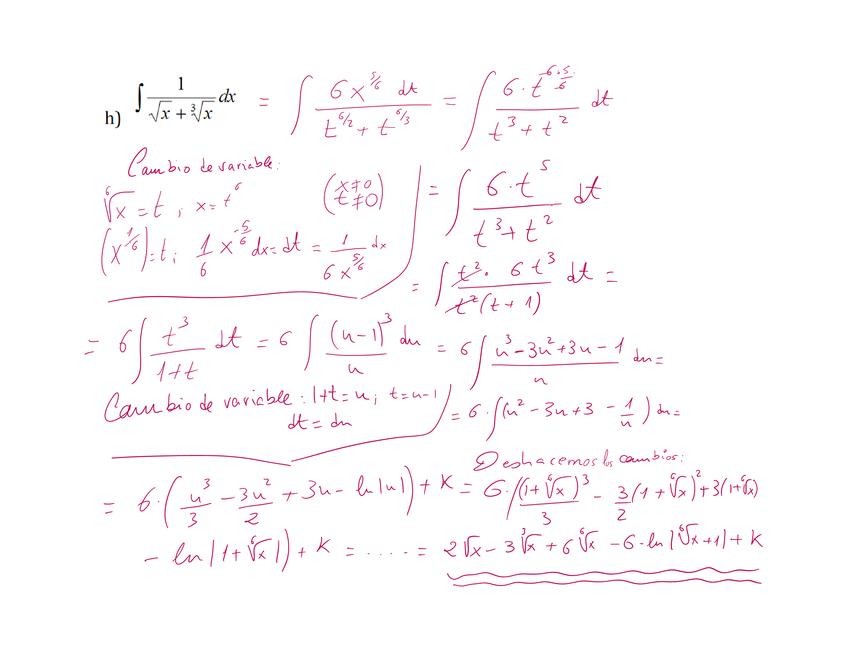 h) ∫ 1/(√x + ∛x) dx = ∫ 6x^(5/6) dt / (t^(6/2) + t^(6/3)) = ∫ 6·t^(6·5/6) / (t³ + t²) dt
Cambio de variable:
⁶√x = t ; x = t⁶ (x≠0 t≠0) = ∫ 6·t⁵ / (t³ + t²) dt
(x^(1/6)) = t ; 1/6 x^(-5/6) dx = dt = 1/(6x^(5/6)) dx
= ∫ t²· 6t³ / (t²(t+1)) dt =
= 6∫ t³/(1+t) dt = 6∫ (u-1)³/u du = 6∫ (u³-3u²+3u-1)/u du =
Cambio de variable: 1+t=u; t=u-1 = 6·∫(u² - 3u + 3 - 1/u) du =
dt = du
Deshacemos los cambios:
= 6·(u³/3 - 3u²/2 + 3u - ln|u|) + K = 6·((1+⁶√x)³/3 - 3/2(1+⁶√x)² + 3(1+⁶√x)
- ln|1+⁶√x|) + K = ..... = 2√x - 3∛x + 6⁶√x - 6·ln|⁶√x+1| + K